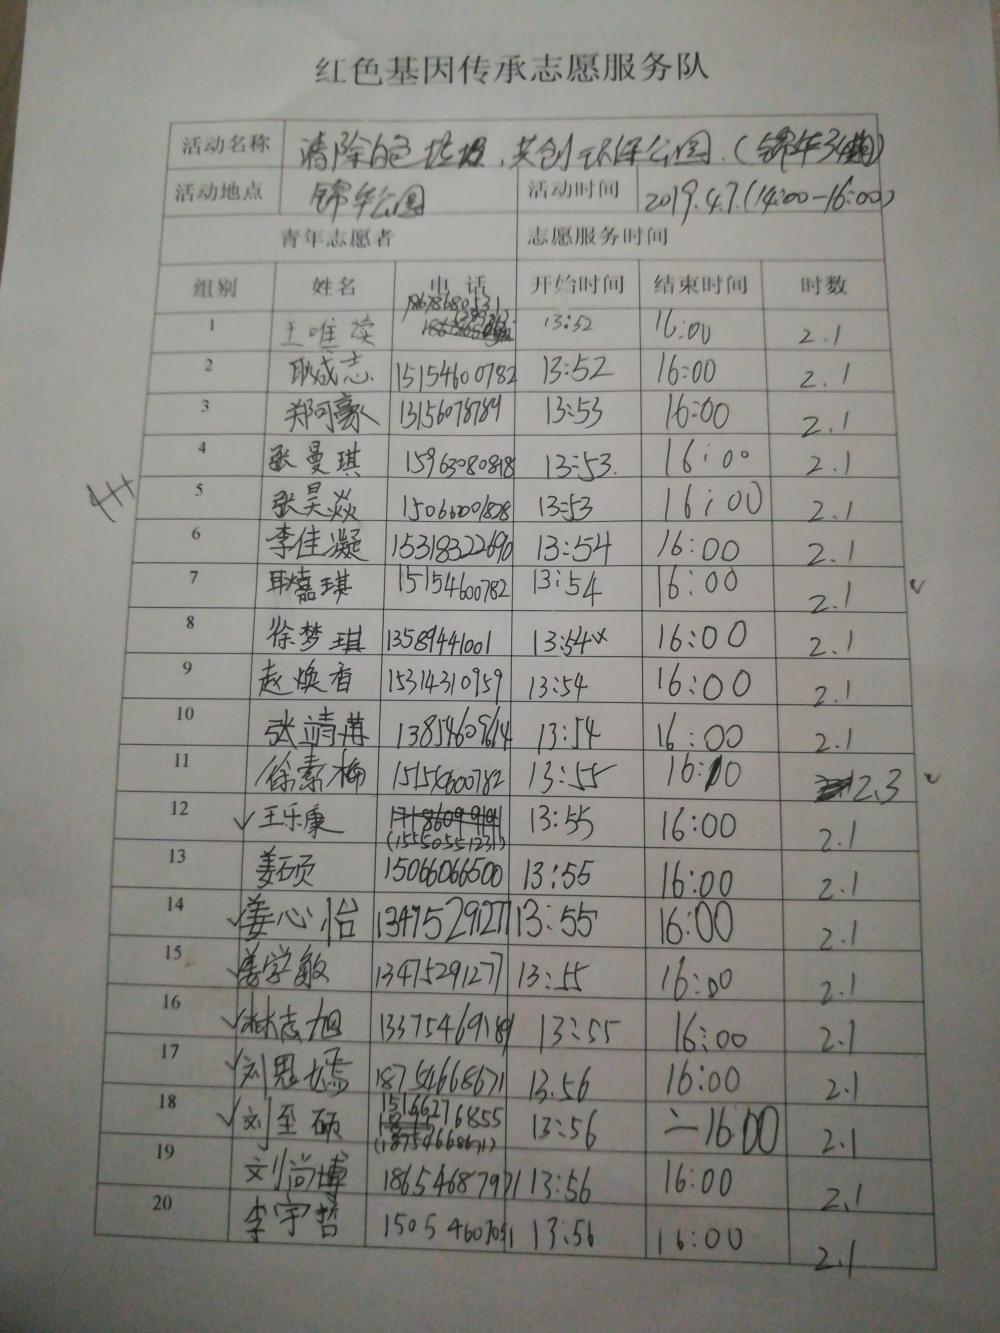 红色基因传承志愿服务队
活动名称 清除白色垃圾,共创环保公园.(锦华34期)
活动地点 锦华公园 活动时间 2019.4.7.(14:00-16:00)
青年志愿者 志愿服务时间
组别 姓名 电话 开始时间 结束时间 时数
18678680531
1 王唯 13:52 16:00 2.1
2 耿成志 15154600782 13:52 16:00 2.1
3 郑可豪 13156078789 13:53 16:00 2.1
4 张曼琪 15963080818 13:53. 16:00 2.1
5 张昊焱 15066001828 13:53 16:00 2.1
6 李佳凝 15318322690 13:54 16:00 2.1
7 耿嘉琪 15154600782 13:54 16:00 2.1
8 徐梦琪 13589441001 13:54 16:00 2.1
9 赵焕香 15314310959 13:54 16:00 2.1
10 张靖苒 13854609614 13:54 16:00 2.1
11 徐素梅 15154600782 13:55 16:10 2.3
12 王乐康 13:55 16:00 2.1
(15550551231)
13 姜硕 15066066500 13:55 16:00 2.1
14 姜心怡 13475291277 13:55 16:00 2.1
15 姜学敏 13475291277 13:55 16:00 2.1
16 林志旭 13375469189 13:55 16:00 2.1
17 刘思嫣 18754668671 13.56 16:00 2.1
18 刘至硕 15166276855 13:56 16:00 2.1
(18754668671)
19 刘尚博 18654687971 13:56 16:00 2.1
20 李宇哲 15054607051 13:56 16:00 2.1